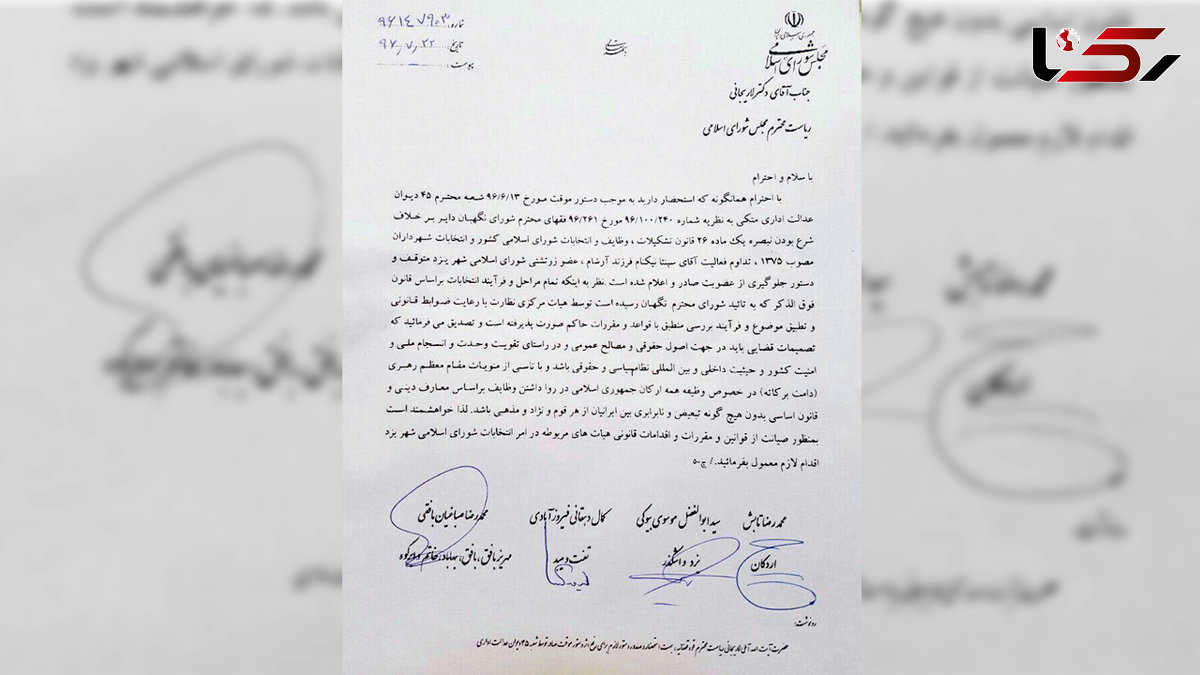 رکنا
جمهوری اسلامی ایران
مجلس شورای اسلامی
شماره: ۹۶۱۴۷۹۰۳
تاریخ: ۹۶,۷,۲۲
پیوست:
جناب آقای دکتر لاریجانی
ریاست محترم مجلس شورای اسلامی
با سلام و احترام
با احترام همانگونه که استحضار دارید به موجب دستور موقت مورخ ۹۶/۶/۱۳ شعبه محترم ۴۵ دیوان
عدالت اداری متکی به نظریه شماره ۹۶/۱۰۰/۲۴۰ مورخ ۹۶/۲۶۱ فقهای محترم شورای نگهبان دایر بر خلاف
شرع بودن تبصره یک ماده ۲۶ قانون تشکیلات ، وظایف و انتخابات شورای اسلامی کشور و انتخابات شهرداران
مصوب ۱۳۷۵ ، تداوم فعالیت آقای سپنتا نیکنام فرزند آرشام ، عضو زرتشتی شورای اسلامی شهر یزد متوقف و
دستور جلوگیری از عضویت صادر و اعلام شده است. نظر به اینکه تمام مراحل و فرآیند انتخابات براساس قانون
فوق الذکر که به تائید شورای محترم نگهبان رسیده است توسط هیات مرکزی نظارت با رعایت ضوابط قانونی
و تطبیق موضوع و فرآیند بررسی منطبق با قواعد و مقررات حاکم صورت پذیرفته است و تصدیق می فرمائید که
تصمیمات قضایی باید در جهت اصول حقوقی و مصالح عمومی و در راستای تقویت وحدت و انسجام ملی و
امنیت کشور و حیثیت داخلی و بین المللی نظام سیاسی و حقوقی باشد و با تاسی از منویات مقام معظم رهبری
(دامت برکاته) در خصوص وظیفه همه ارکان جمهوری اسلامی در روا داشتن وظایف براساس معارف دینی و
قانون اساسی بدون هیچ گونه تبعیض و نابرابری بین ایرانیان از هر قوم و نژاد و مذهبی باشد. لذا خواهشمند است
بمنظور صیانت از قوانین و مقررات و اقدامات قانونی هیات های مربوطه در امر انتخابات شورای اسلامی شهر یزد
اقدام لازم معمول بفرمائید./ چ-۵
محمدرضا تابش سید ابوالفضل موسوی بیوکی کمال دهقانی فیروزآبادی محمدرضا صباغیان بافقی
اردکان یزد و اشکذر تفت و میبد مهریز، بافق، بهاباد، خاتم و ابرکوه
رونوشت:
حضرت آیت اله آملی لاریجانی ریاست محترم قوه قضائیه ، جهت استحضار و صدور دستور لازم برای رفع اثر دستور موقت صادره توسط شعبه ۴۵ دیوان عدالت اداری